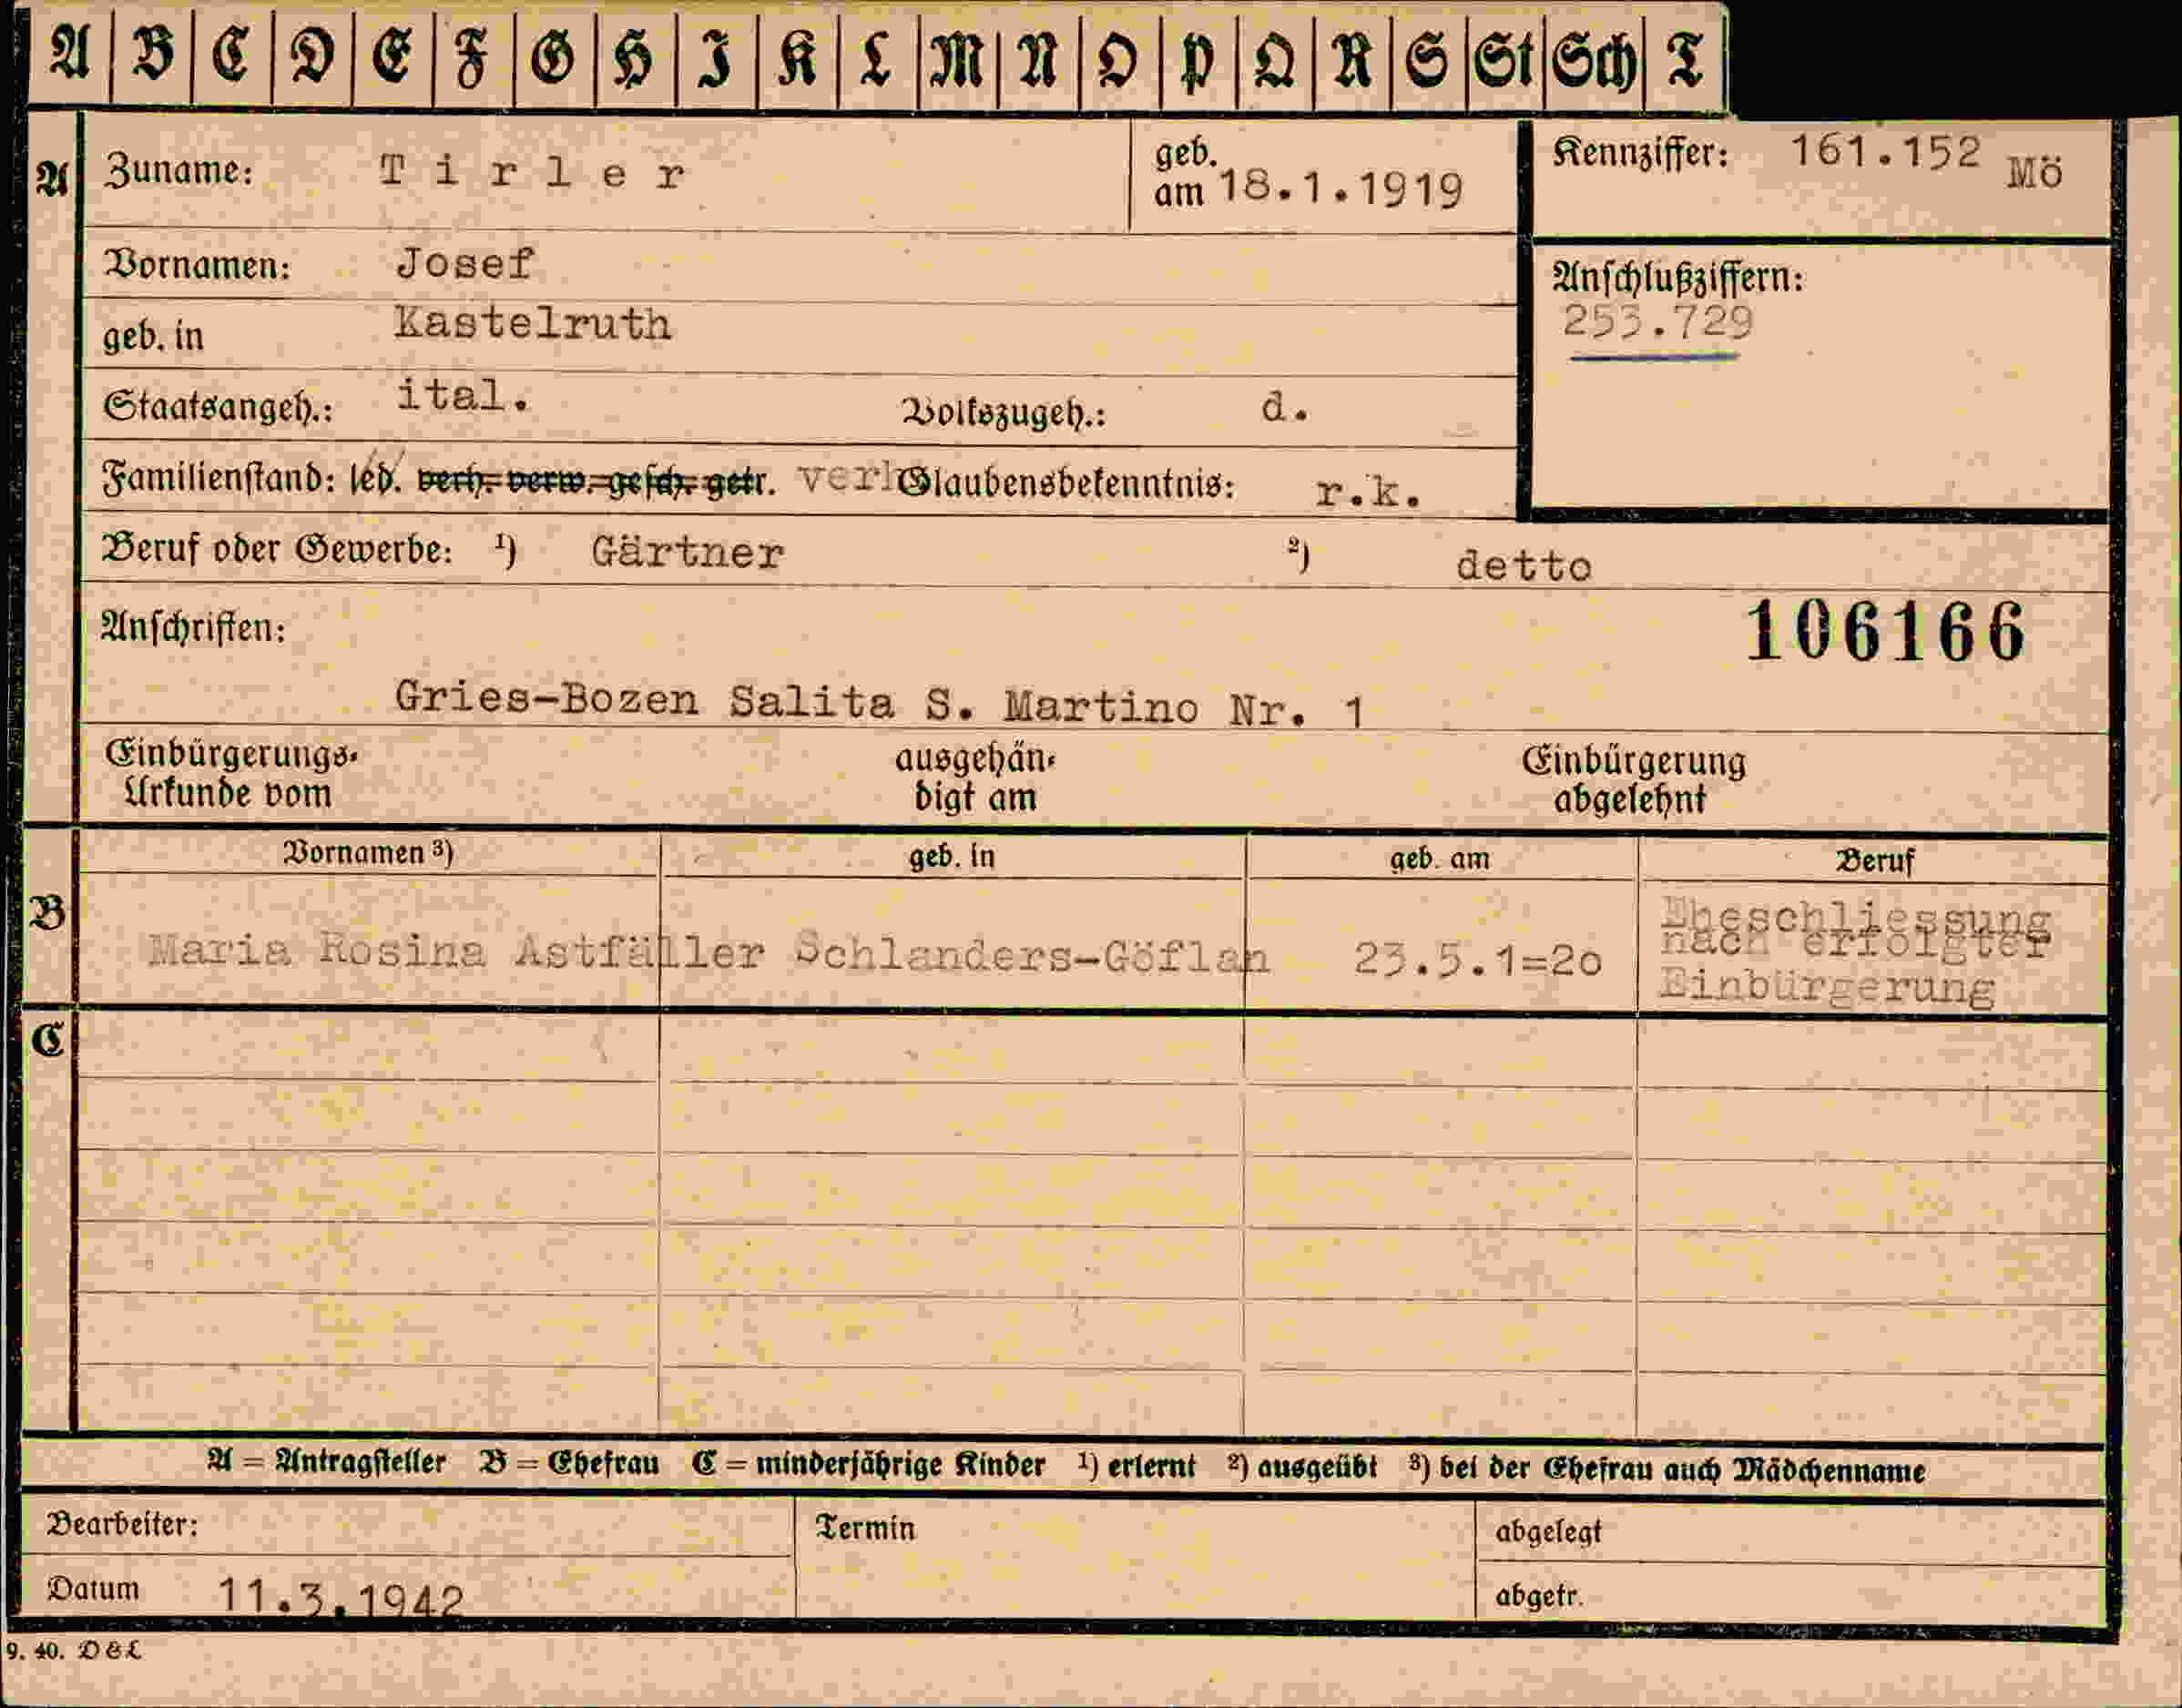 A B C D E F G H I K L M N O P Q R S St Sch T
A Zuname: Tirler geb. am 18.1.1919 Kennziffer: 161.152 Mö
Vornamen: Josef
Anschlußziffern:
253.729
geb. in Kastelruth
Staatsangeh.: ital. Volkszugeh.: d.
Familienstand: led. verh. verw. gesch. getr. verh Glaubensbekenntnis: r.k.
Beruf oder Gewerbe: ¹) Gärtner ²) detto
Anschriften: 106166
Gries-Bozen Salita S. Martino Nr. 1
Einbürgerungs- ausgehän- Einbürgerung
Urkunde vom digt am abgelehnt
Vornamen ³) geb. in geb. am Beruf
B Maria Rosina Astfäller Schlanders-Göflan 23.5.1=20 Eheschliessung
nach erfolgter
Einbürgerung
C
A = Antragsteller B = Ehefrau C = minderjährige Kinder ¹) erlernt ²) ausgeübt ³) bei der Ehefrau auch Mädchenname
Bearbeiter: Termin abgelegt
Datum 11.3.1942 abgetr.
9. 40. D&L